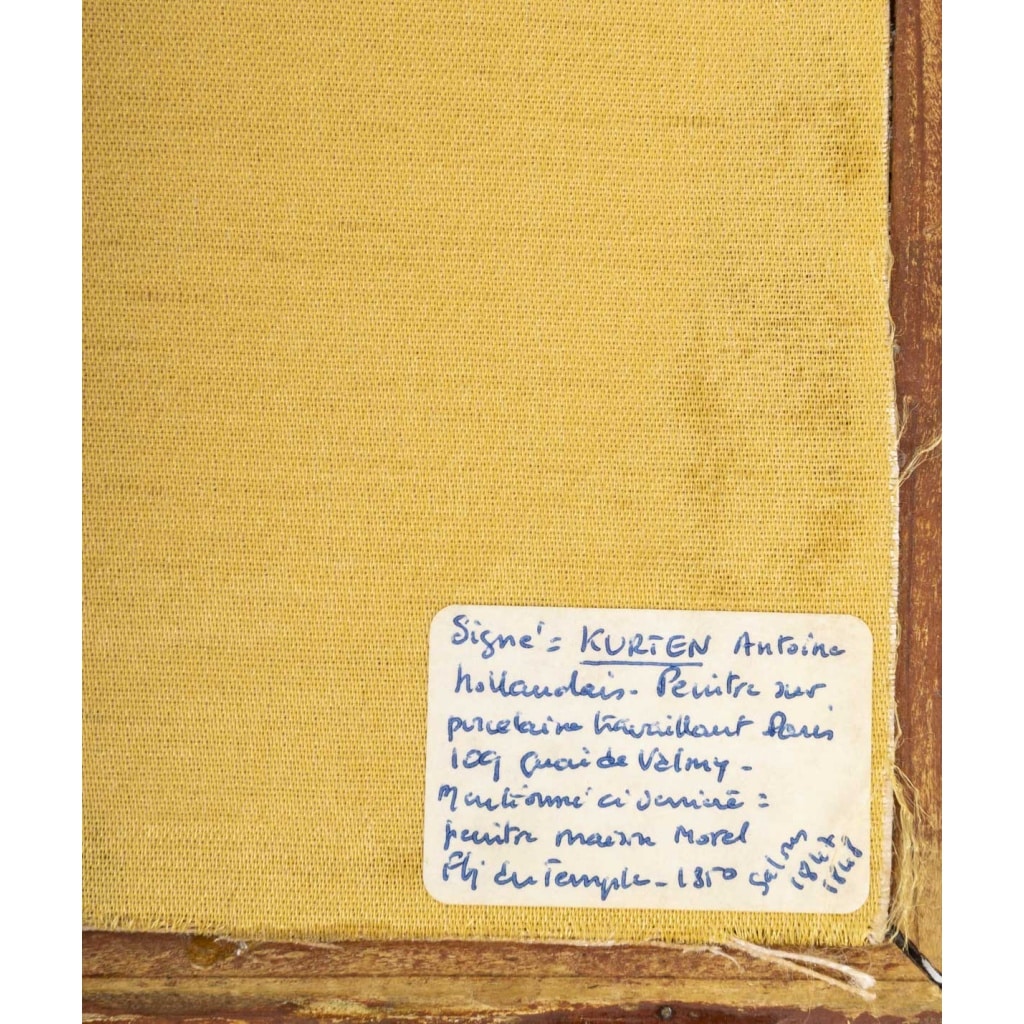 Signé = KURTEN Antoine
hollandais - Peintre sur
porcelaine travaillant Paris
109 Quai de Valmy -
Mentionné ci derrière =
peintre maison Morel
du Temple - 1850
Salons
1847
1848